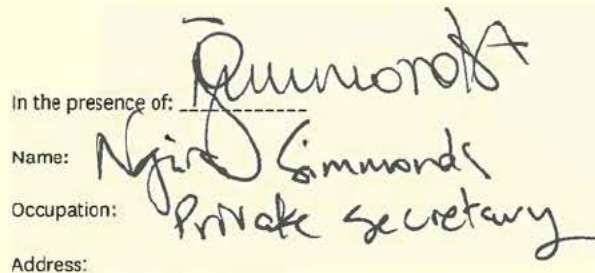 In the presence of:
Name: Ngira Simmonds
Occupation: Private secretary
Address: